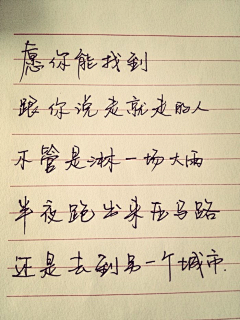 愿你能找到
跟你说走就走的人
不管是淋一场大雨
半夜跑出来压马路
还是去到另一个城市.